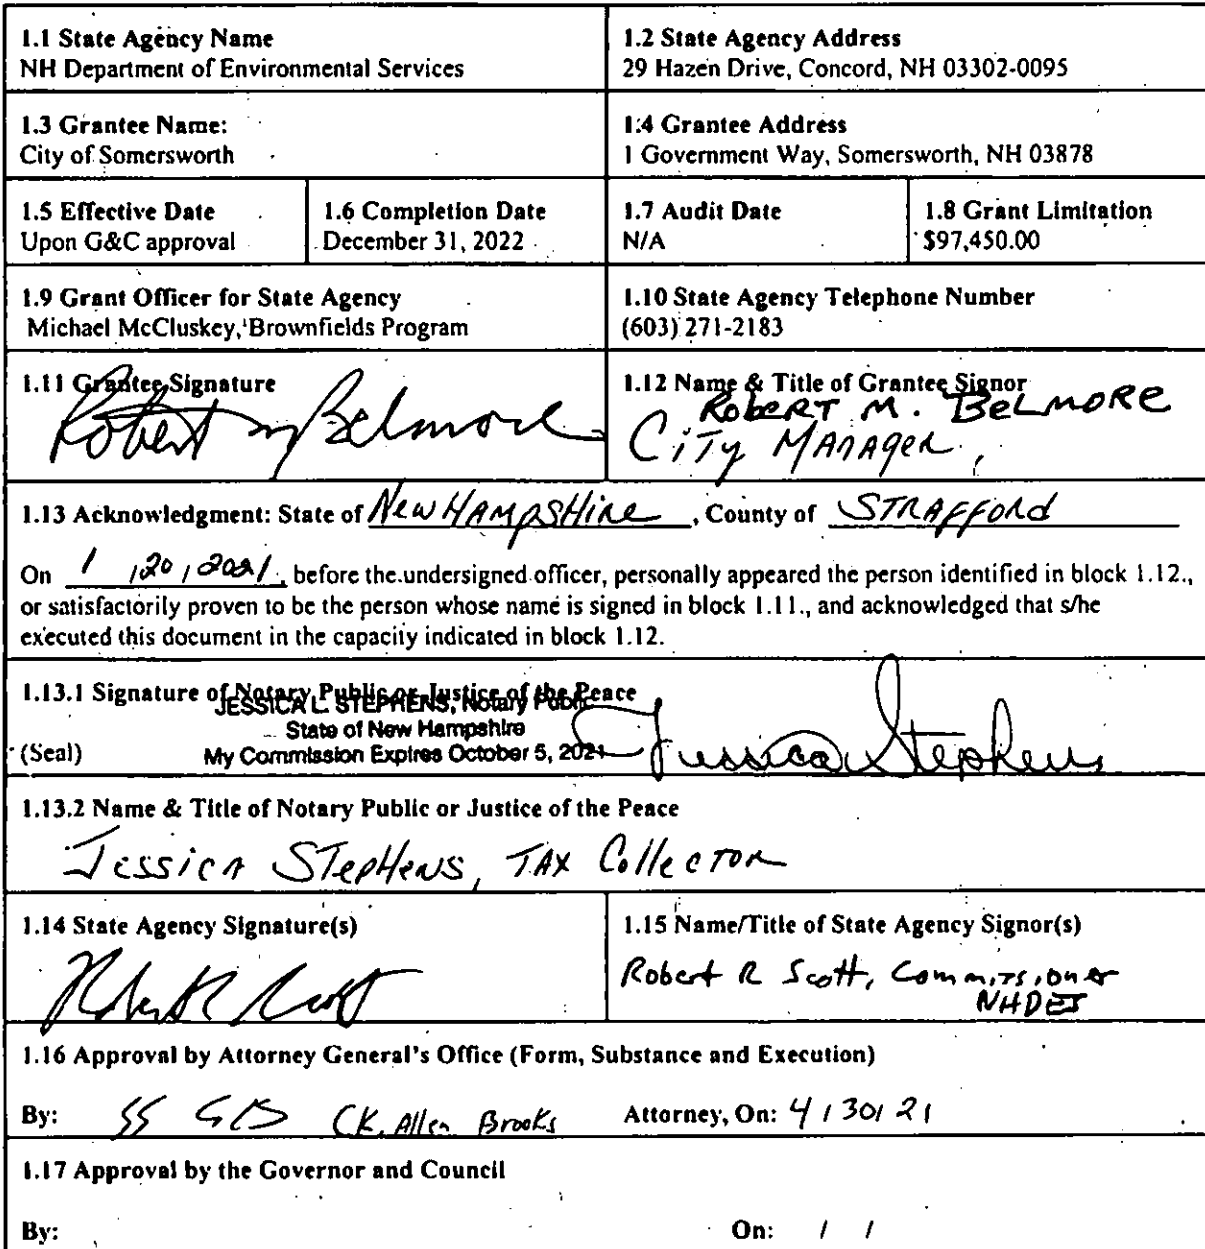 1.1 State Agency Name
NH Department of Environmental Services
1.2 State Agency Address
29 Hazen Drive, Concord, NH 03302-0095
1.3 Grantee Name:
City of Somersworth
1.4 Grantee Address
1 Government Way, Somersworth, NH 03878
1.5 Effective Date
Upon G&C approval
1.6 Completion Date
December 31, 2022
1.7 Audit Date
N/A
1.8 Grant Limitation
$97,450.00
1.9 Grant Officer for State Agency
Michael McCluskey, Brownfields Program
1.10 State Agency Telephone Number
(603) 271-2183
1.11 Grantee Signature
Robert M Belmore
1.12 Name & Title of Grantee Signor
Robert M. Belmore
City Manager
1.13 Acknowledgment: State of New Hampshire, County of Strafford
On 1 /20 / 2021, before the undersigned officer, personally appeared the person identified in block 1.12.,
or satisfactorily proven to be the person whose name is signed in block 1.11., and acknowledged that s/he
executed this document in the capacity indicated in block 1.12.
1.13.1 Signature of Notary Public or Justice of the Peace
JESSICA L. STEPHENS, Notary Public
State of New Hampshire
(Seal)
My Commission Expires October 5, 2021
Jessica Stephens
1.13.2 Name & Title of Notary Public or Justice of the Peace
Jessica Stephens, Tax Collector
1.14 State Agency Signature(s)
Robert R Scott
1.15 Name/Title of State Agency Signor(s)
Robert R Scott, Commissioner
NHDES
1.16 Approval by Attorney General's Office (Form, Substance and Execution)
By: CK. Allen Brooks Attorney, On: 4 / 30 / 21
1.17 Approval by the Governor and Council
By: On: / /